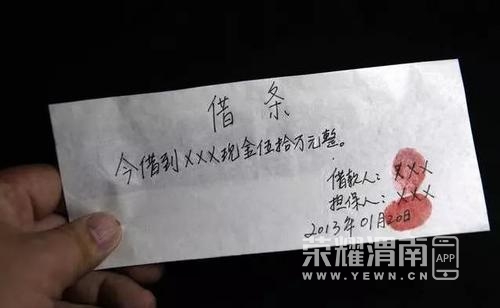 借条
今借到XXX现金伍拾万元整。
借款人：XXX
担保人：XXX
2013年01月20日
荣耀渭南 APP
WWW.YEWN.CN